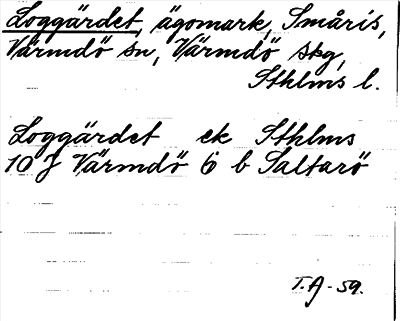 Loggärdet, ägomark, Småris,
Värmdö sn, Värmdö skg,
Sthlms l.
Loggärdet ek Sthlms
10 J Värmdö 6 b Saltarö
T.A-59.